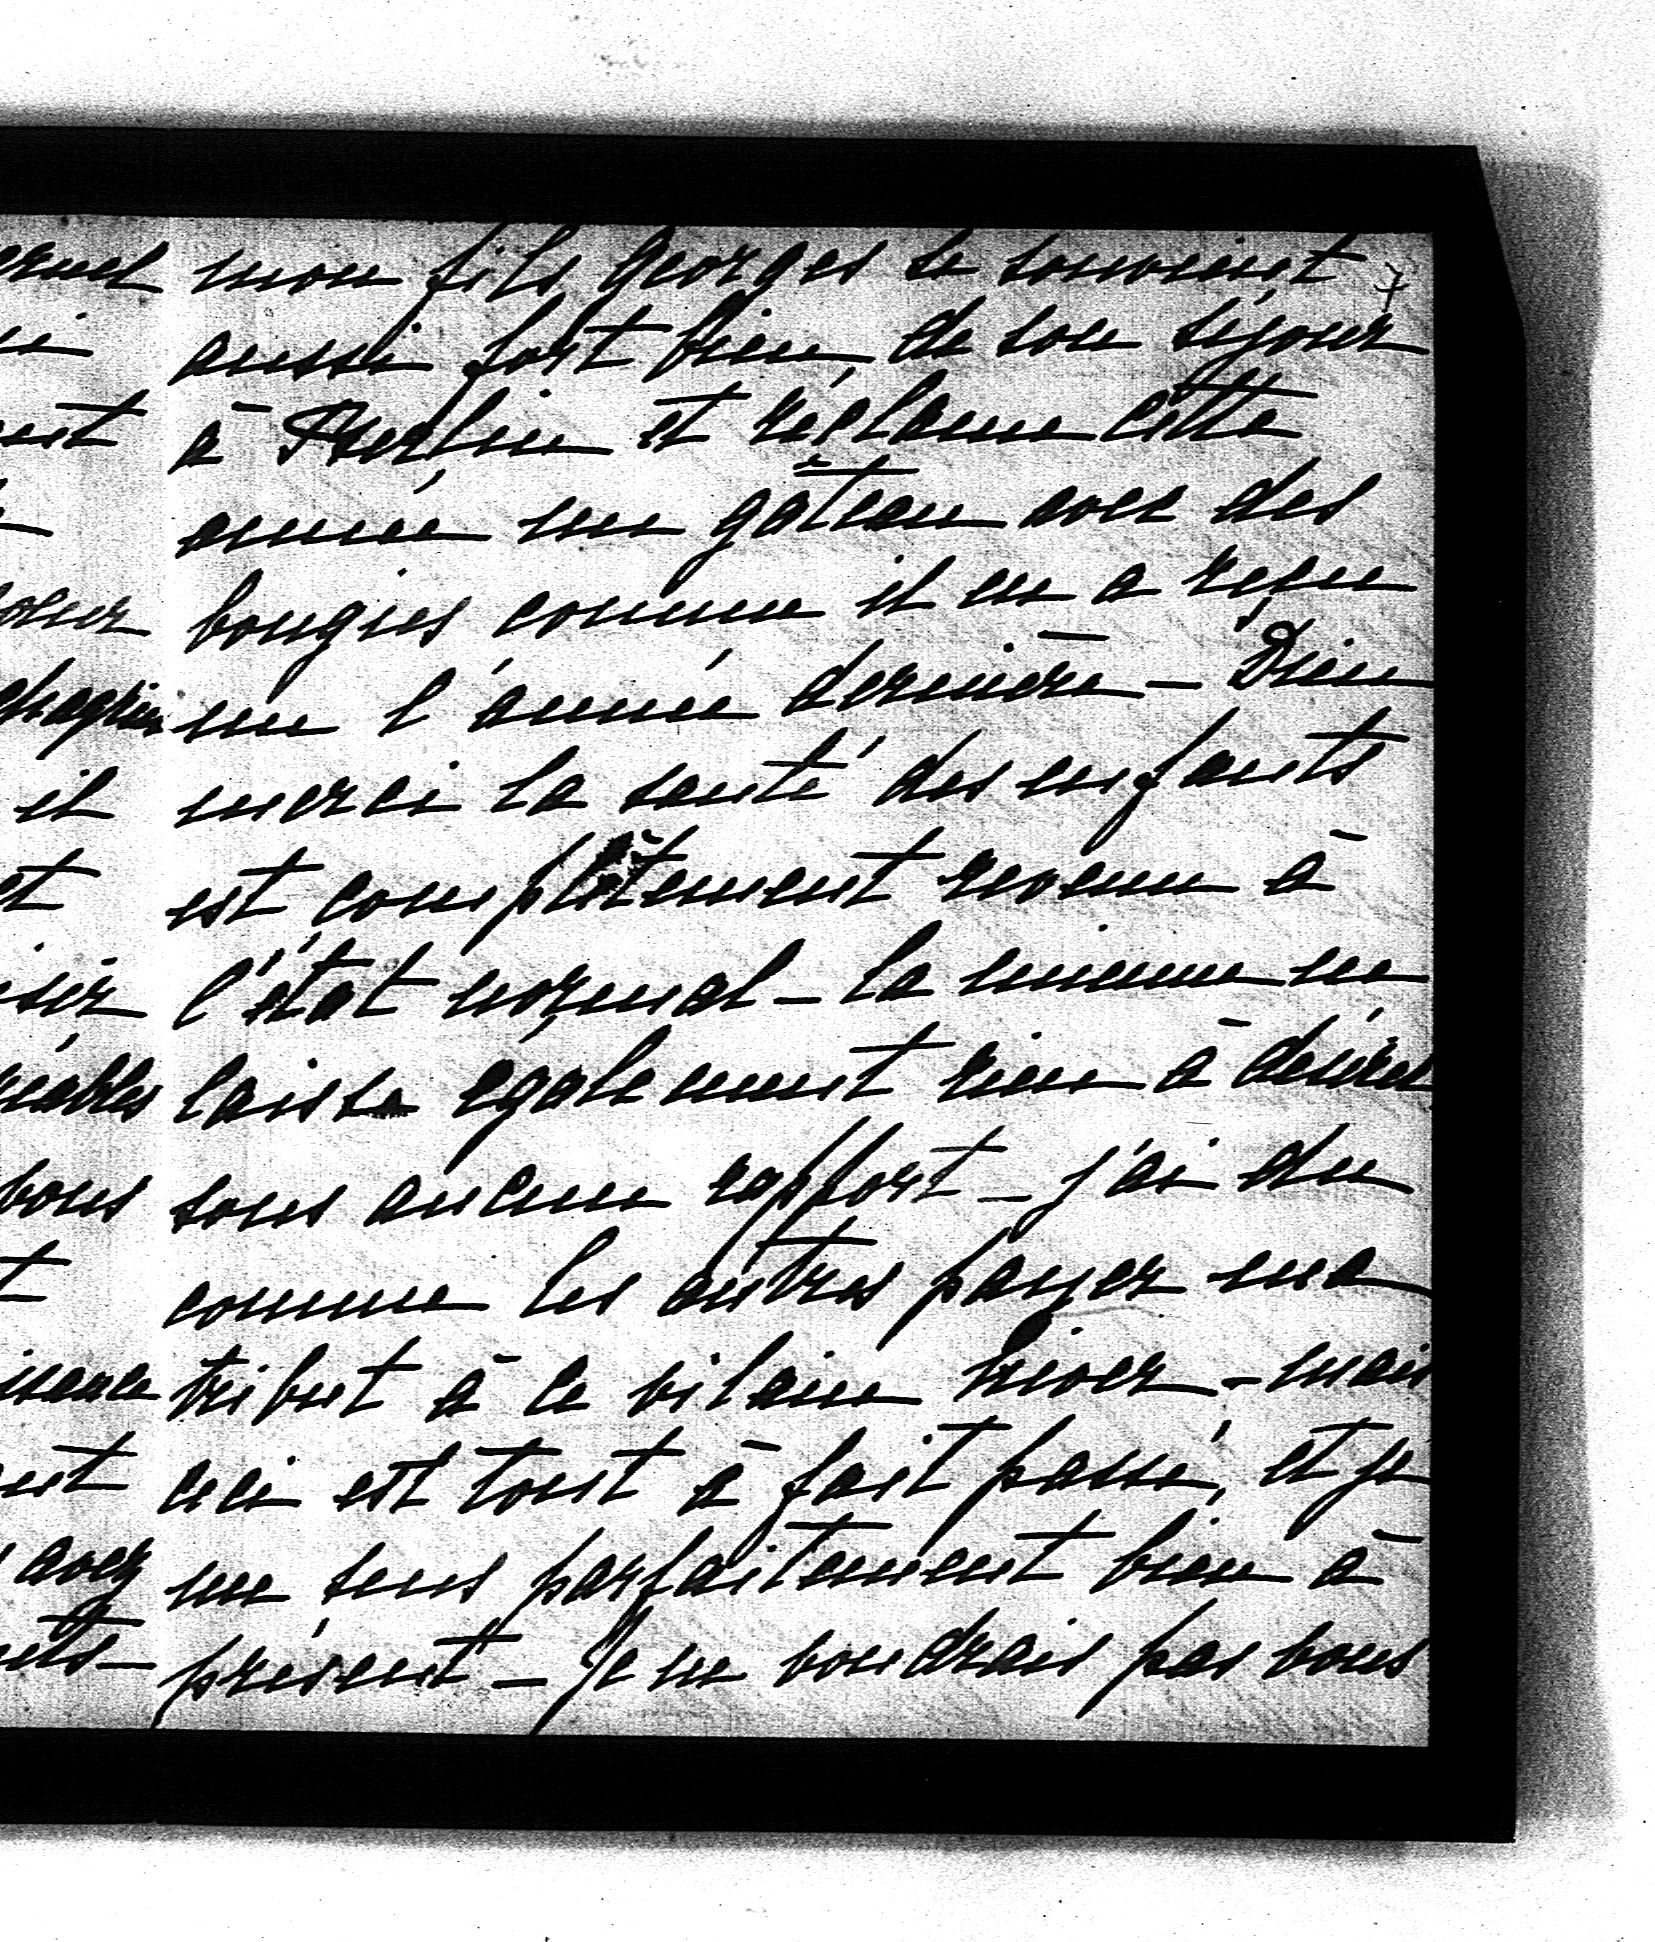 mon fils Georges se souvient
aussi fort bien, de son séjour
à Berlin et réclame cette
année un gâteau avec des
bougies comme il en a reçu
un l'année dernière – Dieu
merci la santé des enfants
est complètement revenu à
l'état normal – la mienne ne
laisse également rien à désirer
sous aucun rapport – j'ai du
comme les autres payer ma
tribut à ce vilain hiver – mais
ceci est tout à fait passé, et je
me sens parfaitement bien à
présent – Je ne voudrais pas vous
chagrin
il
et
vous
avez